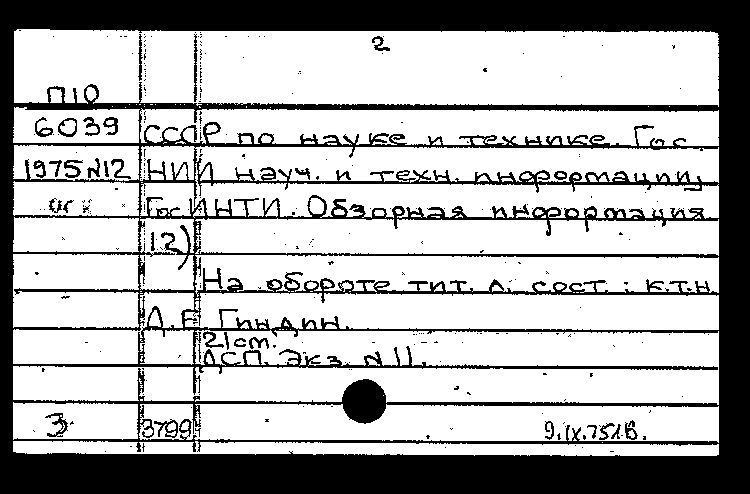 2
П10
6039 СССР по науке и технике. Гос.
1975 N12 НИИ науч. и техн. информации,
ГосИНТИ. Обзорная информация
12)
На обороте тит. л. сост.: к.т.н.
Д.Е Гиндин.
21 cm.
ДСП. Экз. N 11.
3 3799 9.IX.75